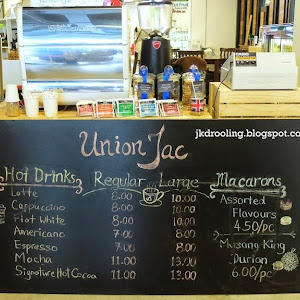 jkdrooling.blogspot.co
Union Jac
Hot Drinks Regular Large
Latte 8.00 10.00
Cappuccino 8.00 10.00
Flat White 8.00 10.00
Americano 7.00 8.00
Espresso 7.00 8.00
Mocha 11.00 13.00
Signature Hot Cocoa 11.00 13.00
Macarons
Assorted
Flavours
4.50/pc
Musang King
Durian
6.00/pc